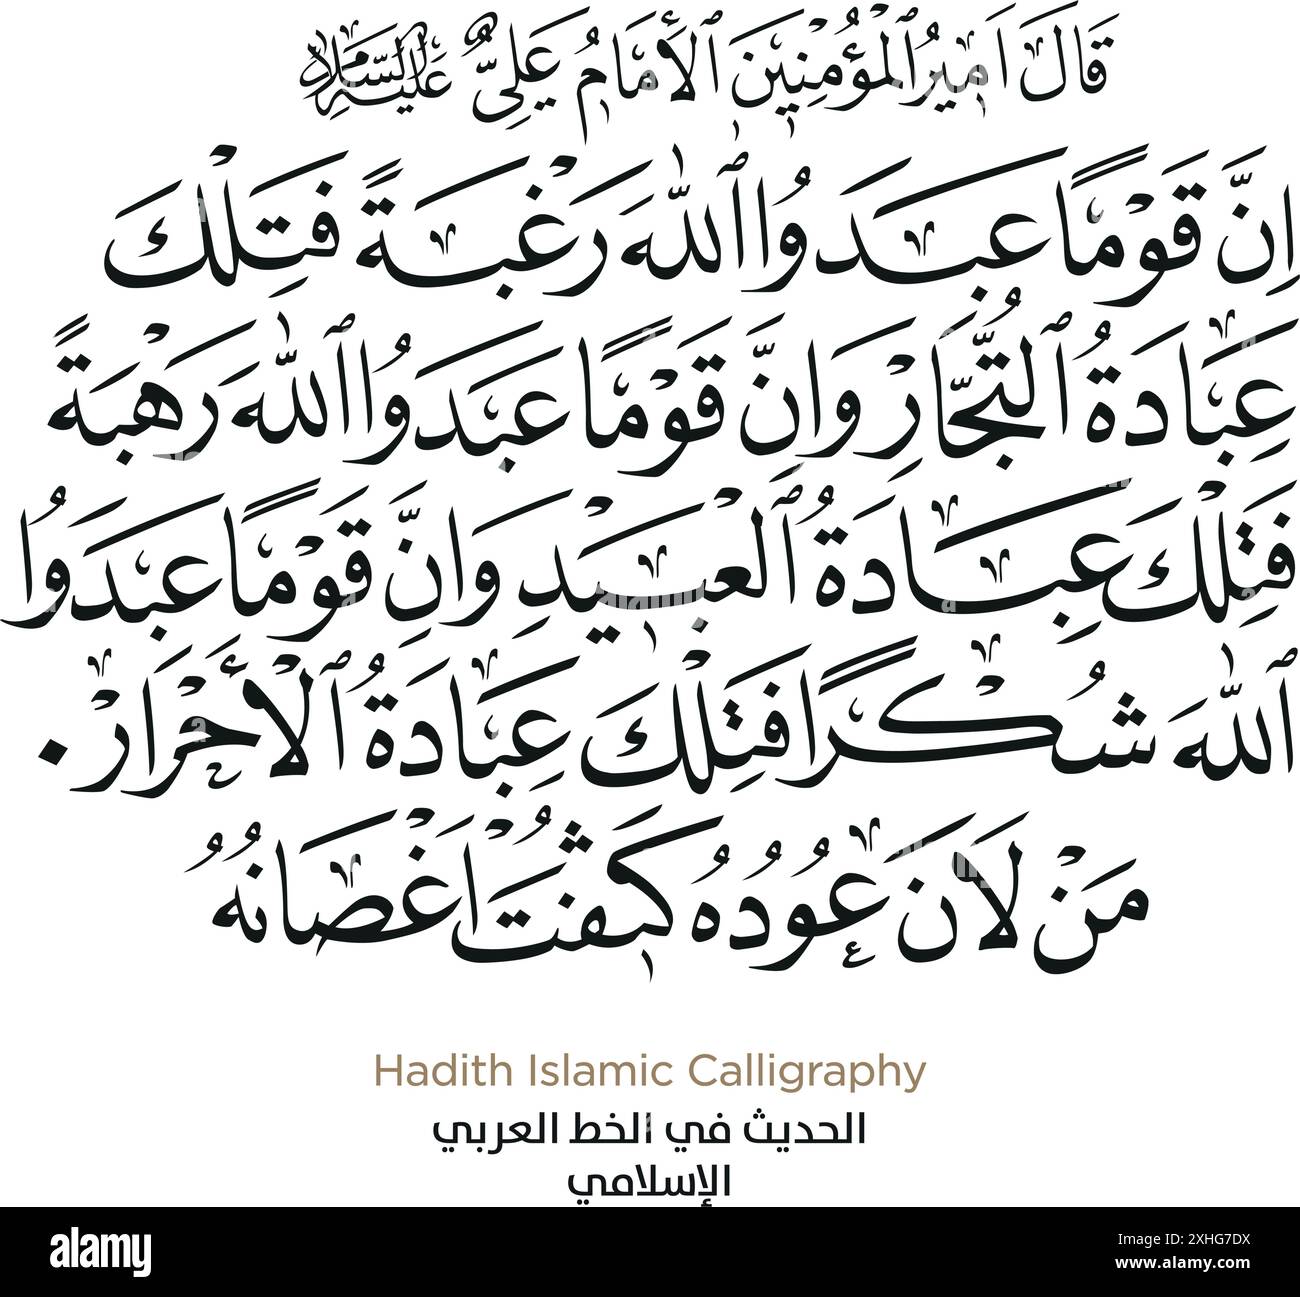 قَالَ اَمِيرُ ٱلْمُؤْمِنِينَ ٱلْأَمَامُ عَلِيٌّ عَلَيْهِ ٱلسَّلَامُ
اِنَّ قَوْمًا عَبَدُوا ٱللّٰهَ رَغْبَةً فَتِلْكَ
عِبَادَةُ ٱلتُّجَّارِ وَاِنَّ قَوْمًا عَبَدَوُا ٱللّٰهَ رَهْبَةً
فَتِلْكَ عِبَادَةُ ٱلْعَبِيْدِ وَاِنَّ قَوْمًا عَبَدَوُا
ٱللّٰهَ شُكْرًا فَتِلْكَ عِبَادَةُ ٱلْأَحْرَارْ.
مَنْ لَانَ عُودُهُ كَثُفَتْ اَغْصَانُهُ
Hadith Islamic Calligraphy
الحديث في الخط العربي
الإسلامي
alamy
Image ID: 2XHG7DX
www.alamy.com